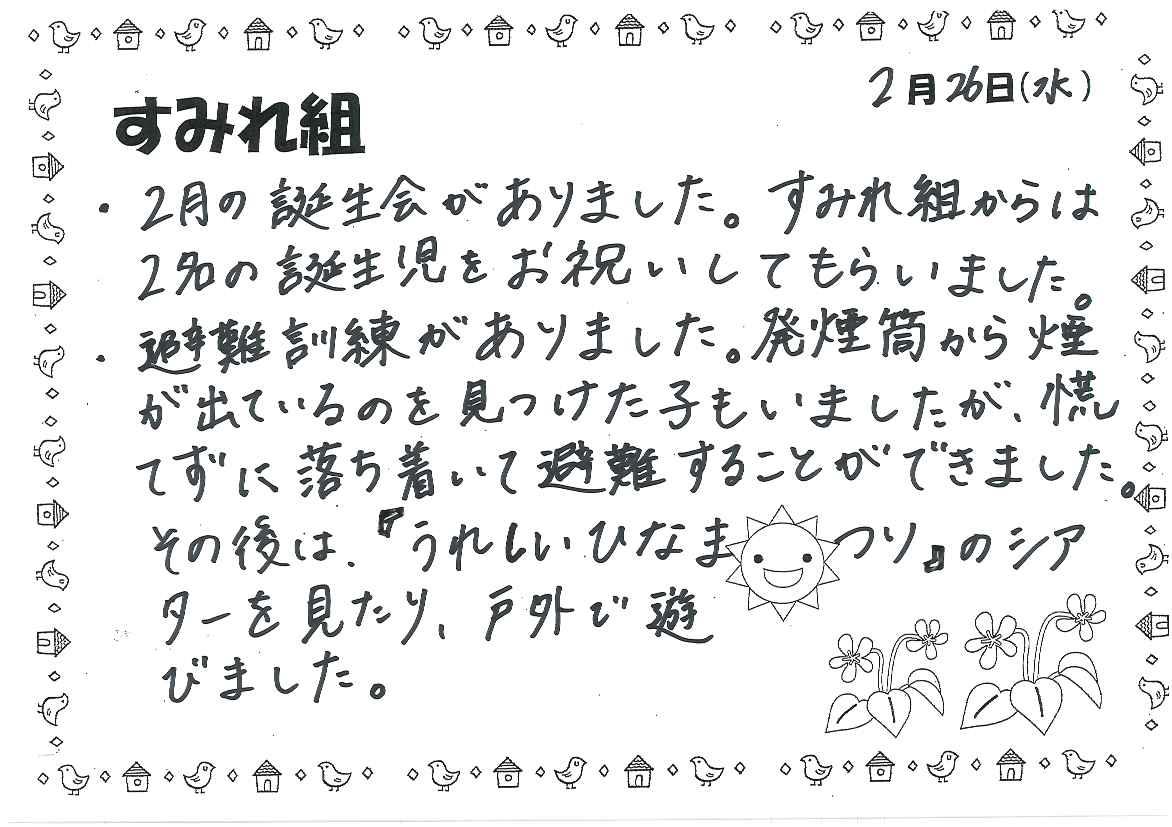 2月26日(水)
すみれ組
・2月の誕生会がありました。すみれ組からは
2名の誕生児をお祝いしてもらいました。
・避難訓練がありました。発煙筒から煙
が出ているのを見つけた子もいましたが、慌
てずに落ち着いて避難することができました。
その後は、『うれしいひなまつり』のシア
ターを見たり、戸外で遊
びました。